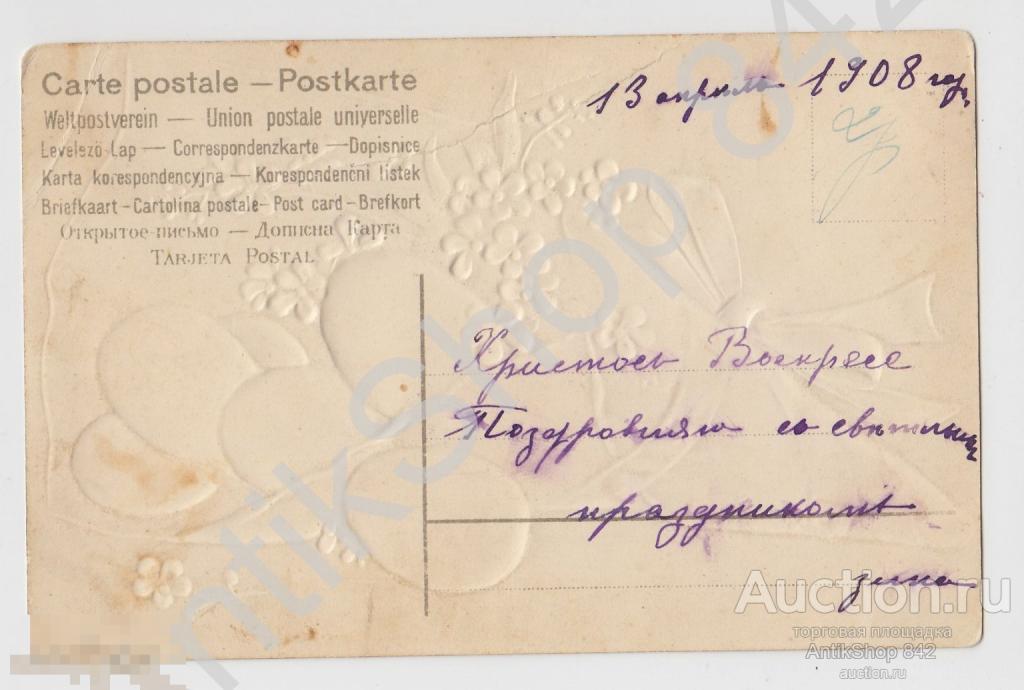 13 апреля 1908 год.
Carte postale — Postkarte
Weltpostverein — Union postale universelle
Levelező Lap — Correspondenzkarte — Dopisnice
Karta korespondencyjna — Korespondenční lístek
Briefkaart - Cartolina postale - Post card - Brefkort
Открытое письмо — Дописна Карта
Tarjeta Postal
Христосъ Воскресе
Поздровляю съ свѣтлымъ
праздникомъ
Зина
AntikShop 842
Auction.ru
торговая площадка
AntikShop 842
auction.ru